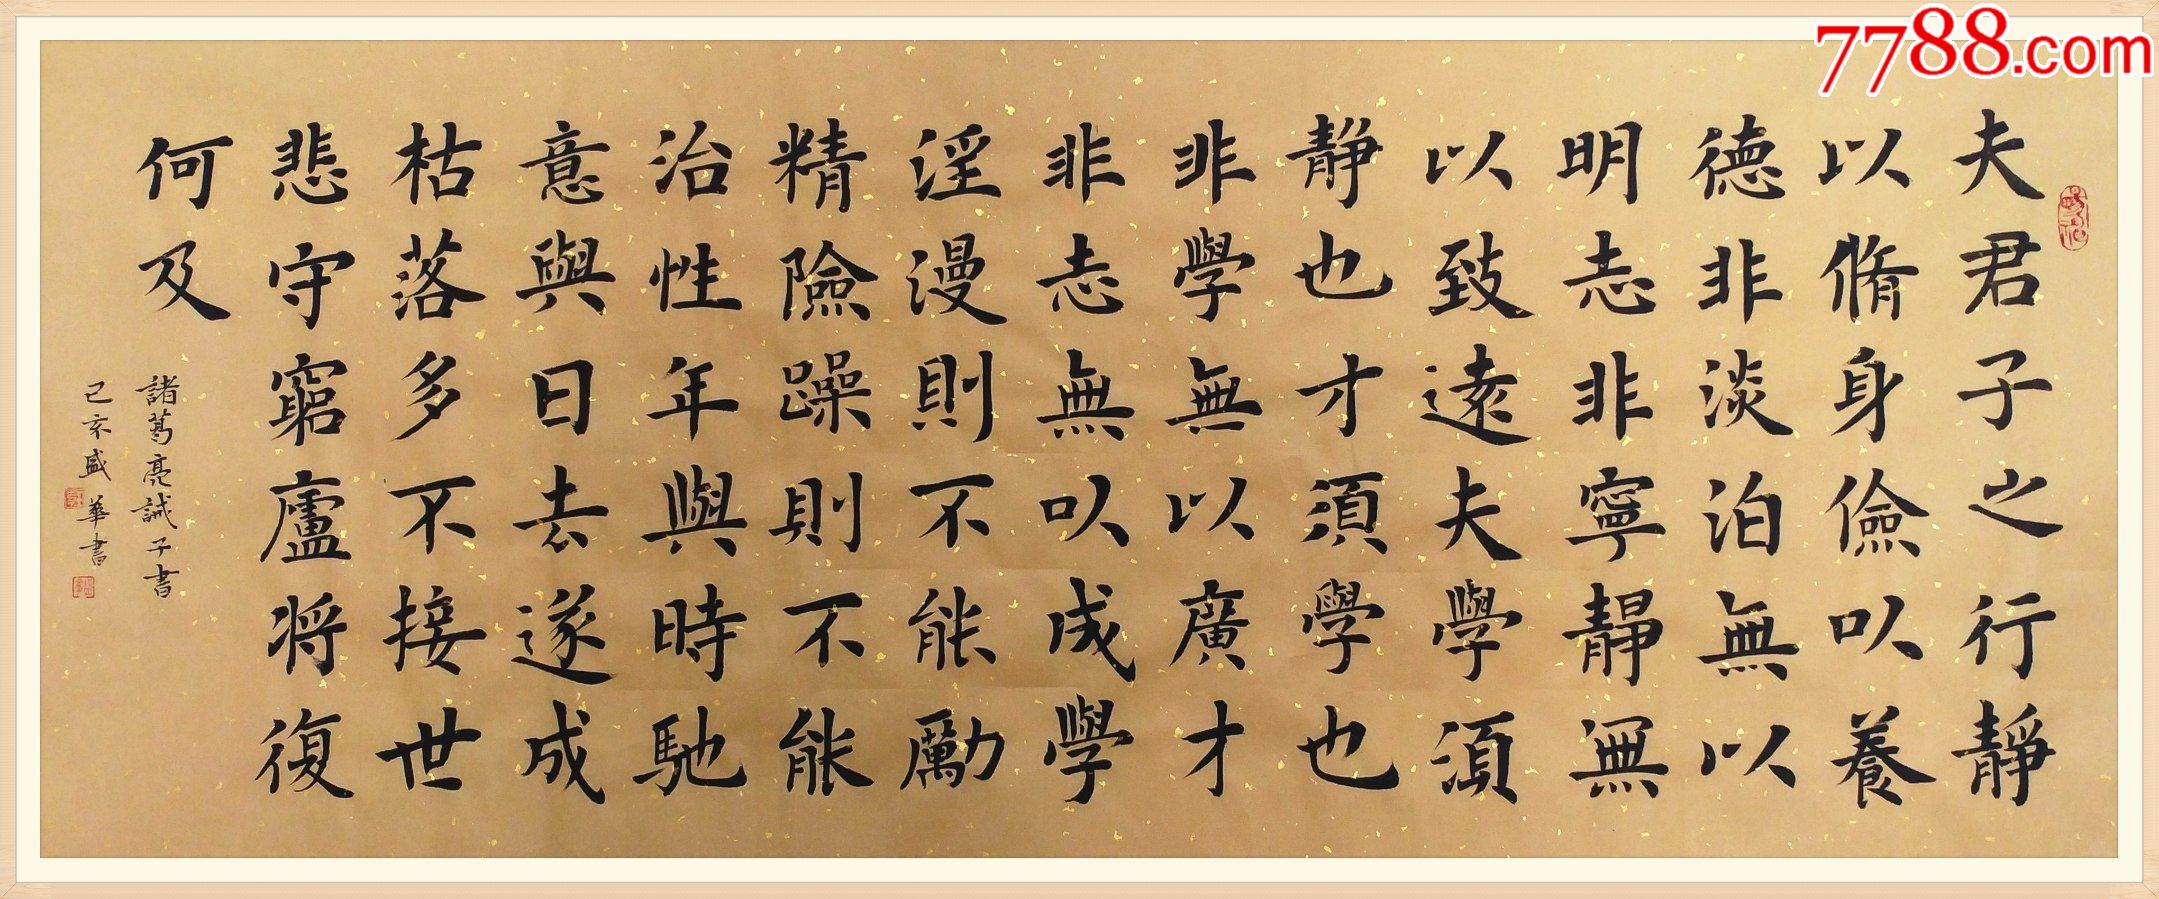 7788.com
夫君子之行靜
以脩身儉以養
德非淡泊無以
明志非寧靜無
以致遠夫學須
靜也才須學也
非學無以廣才
非志無以成學
淫漫則不能勵
精險躁則不能
治性年與時馳
意與日去遂成
枯落多不接世
悲守窮廬將復
何及
諸葛亮誡子書
己亥盛華書